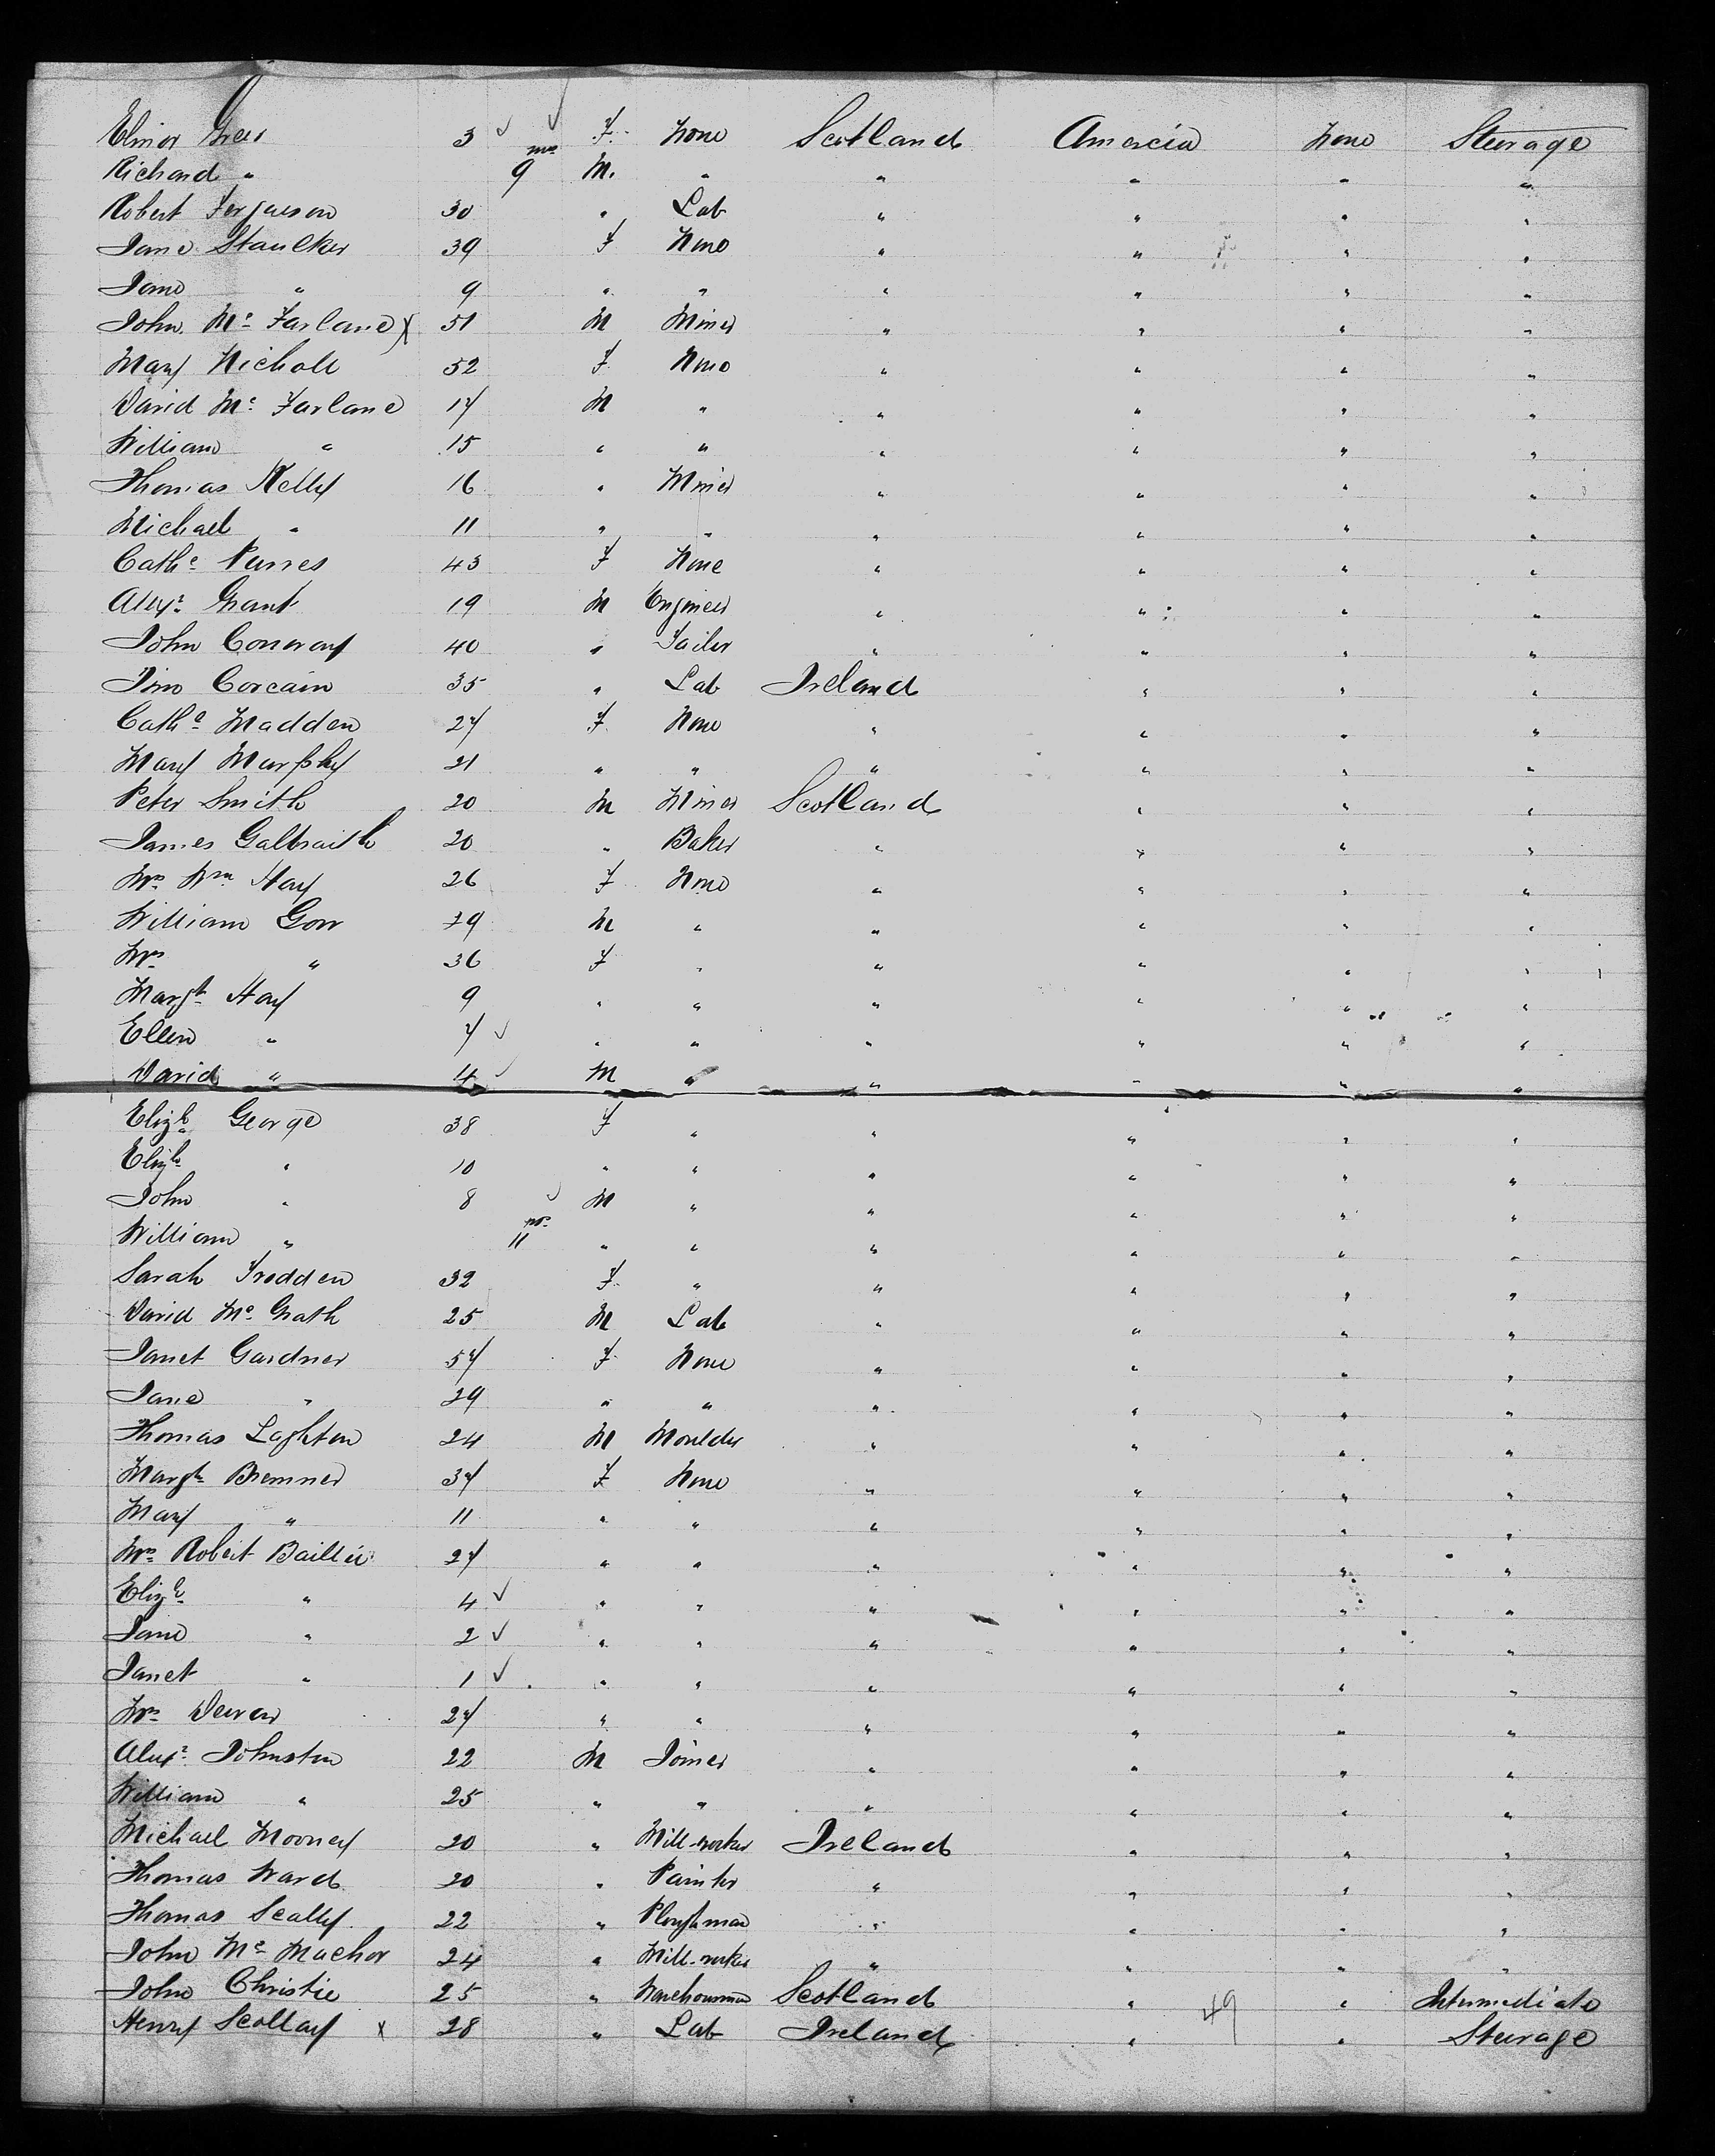 Elinor Greer 3 ✓ ✓ F. None Scotland Amercia None Steerage
Richard " 9 mos M. " " " " "
Robert Ferguson 30 " Lab " " " "
Jane Staulker 39 F None " " " "
Jane " 9 " " " " " "
John Mc Farlane X 51 M Miner " " " "
Mary Nicholl 52 F None " " " "
David Mc Farlane 17 M " " " " "
William " 15 " " " " " "
Thomas Kelly 16 " Miner " " " "
Michael " 11 " " " " " "
Cathe Purves 43 F None " " " "
Alexr Grant 19 M Engineer " " " "
John Conway 40 " Tailor " " " "
Jno Corcain 35 " Lab Ireland " " "
Cathe Madden 27 F None " " " "
Mary Murphy 21 " " " " " "
Peter Smith 20 M Miner Scotland " " "
James Galbraith 20 " Baker " " " "
Mrs Wm Hay 26 F None " " " "
William Gow 39 M " " " " "
Mrs " 36 F " " " " "
Margt Hay 9 " " " " " "
Ellen " 7 ✓ " " " " " "
David " 4 ✓ M " " " " "
Elizh George 38 F " " " " "
Elizh " 10 " " " " " "
John " 8 ✓ M " " " " "
William " 11 mos " " " " " "
Sarah Frodden 32 F " " " " "
David Mc Grath 25 M Lab " " " "
Janet Gardner 57 F None " " " "
Jane " 29 " " " " " "
Thomas Laghton 24 M Moulder " " " "
Margt Bremner 37 F None " " " "
Mary " 11 " " " " " "
Mrs Robert Baillie 27 " " " " " "
Elizh " 4 ✓ " " " " " "
Jane " 2 ✓ " " " " " "
Janet " 1 ✓ " " " " " "
Mrs Dewar 27 " " " " " "
Alexr Johnston 22 M Joiner " " " "
William " 25 " " " " " "
Michael Mooney 20 " Mill-worker Ireland " " "
Thomas Ward 20 " Painter " " " "
Thomas Scally 22 " Ploughman " " " "
John Mc Machor 24 " Mill-worker " " " "
John Christie 25 " Warehouseman Scotland " 49 " Intermediate
Henry Scollay X 28 " Lab Ireland " " Steerage